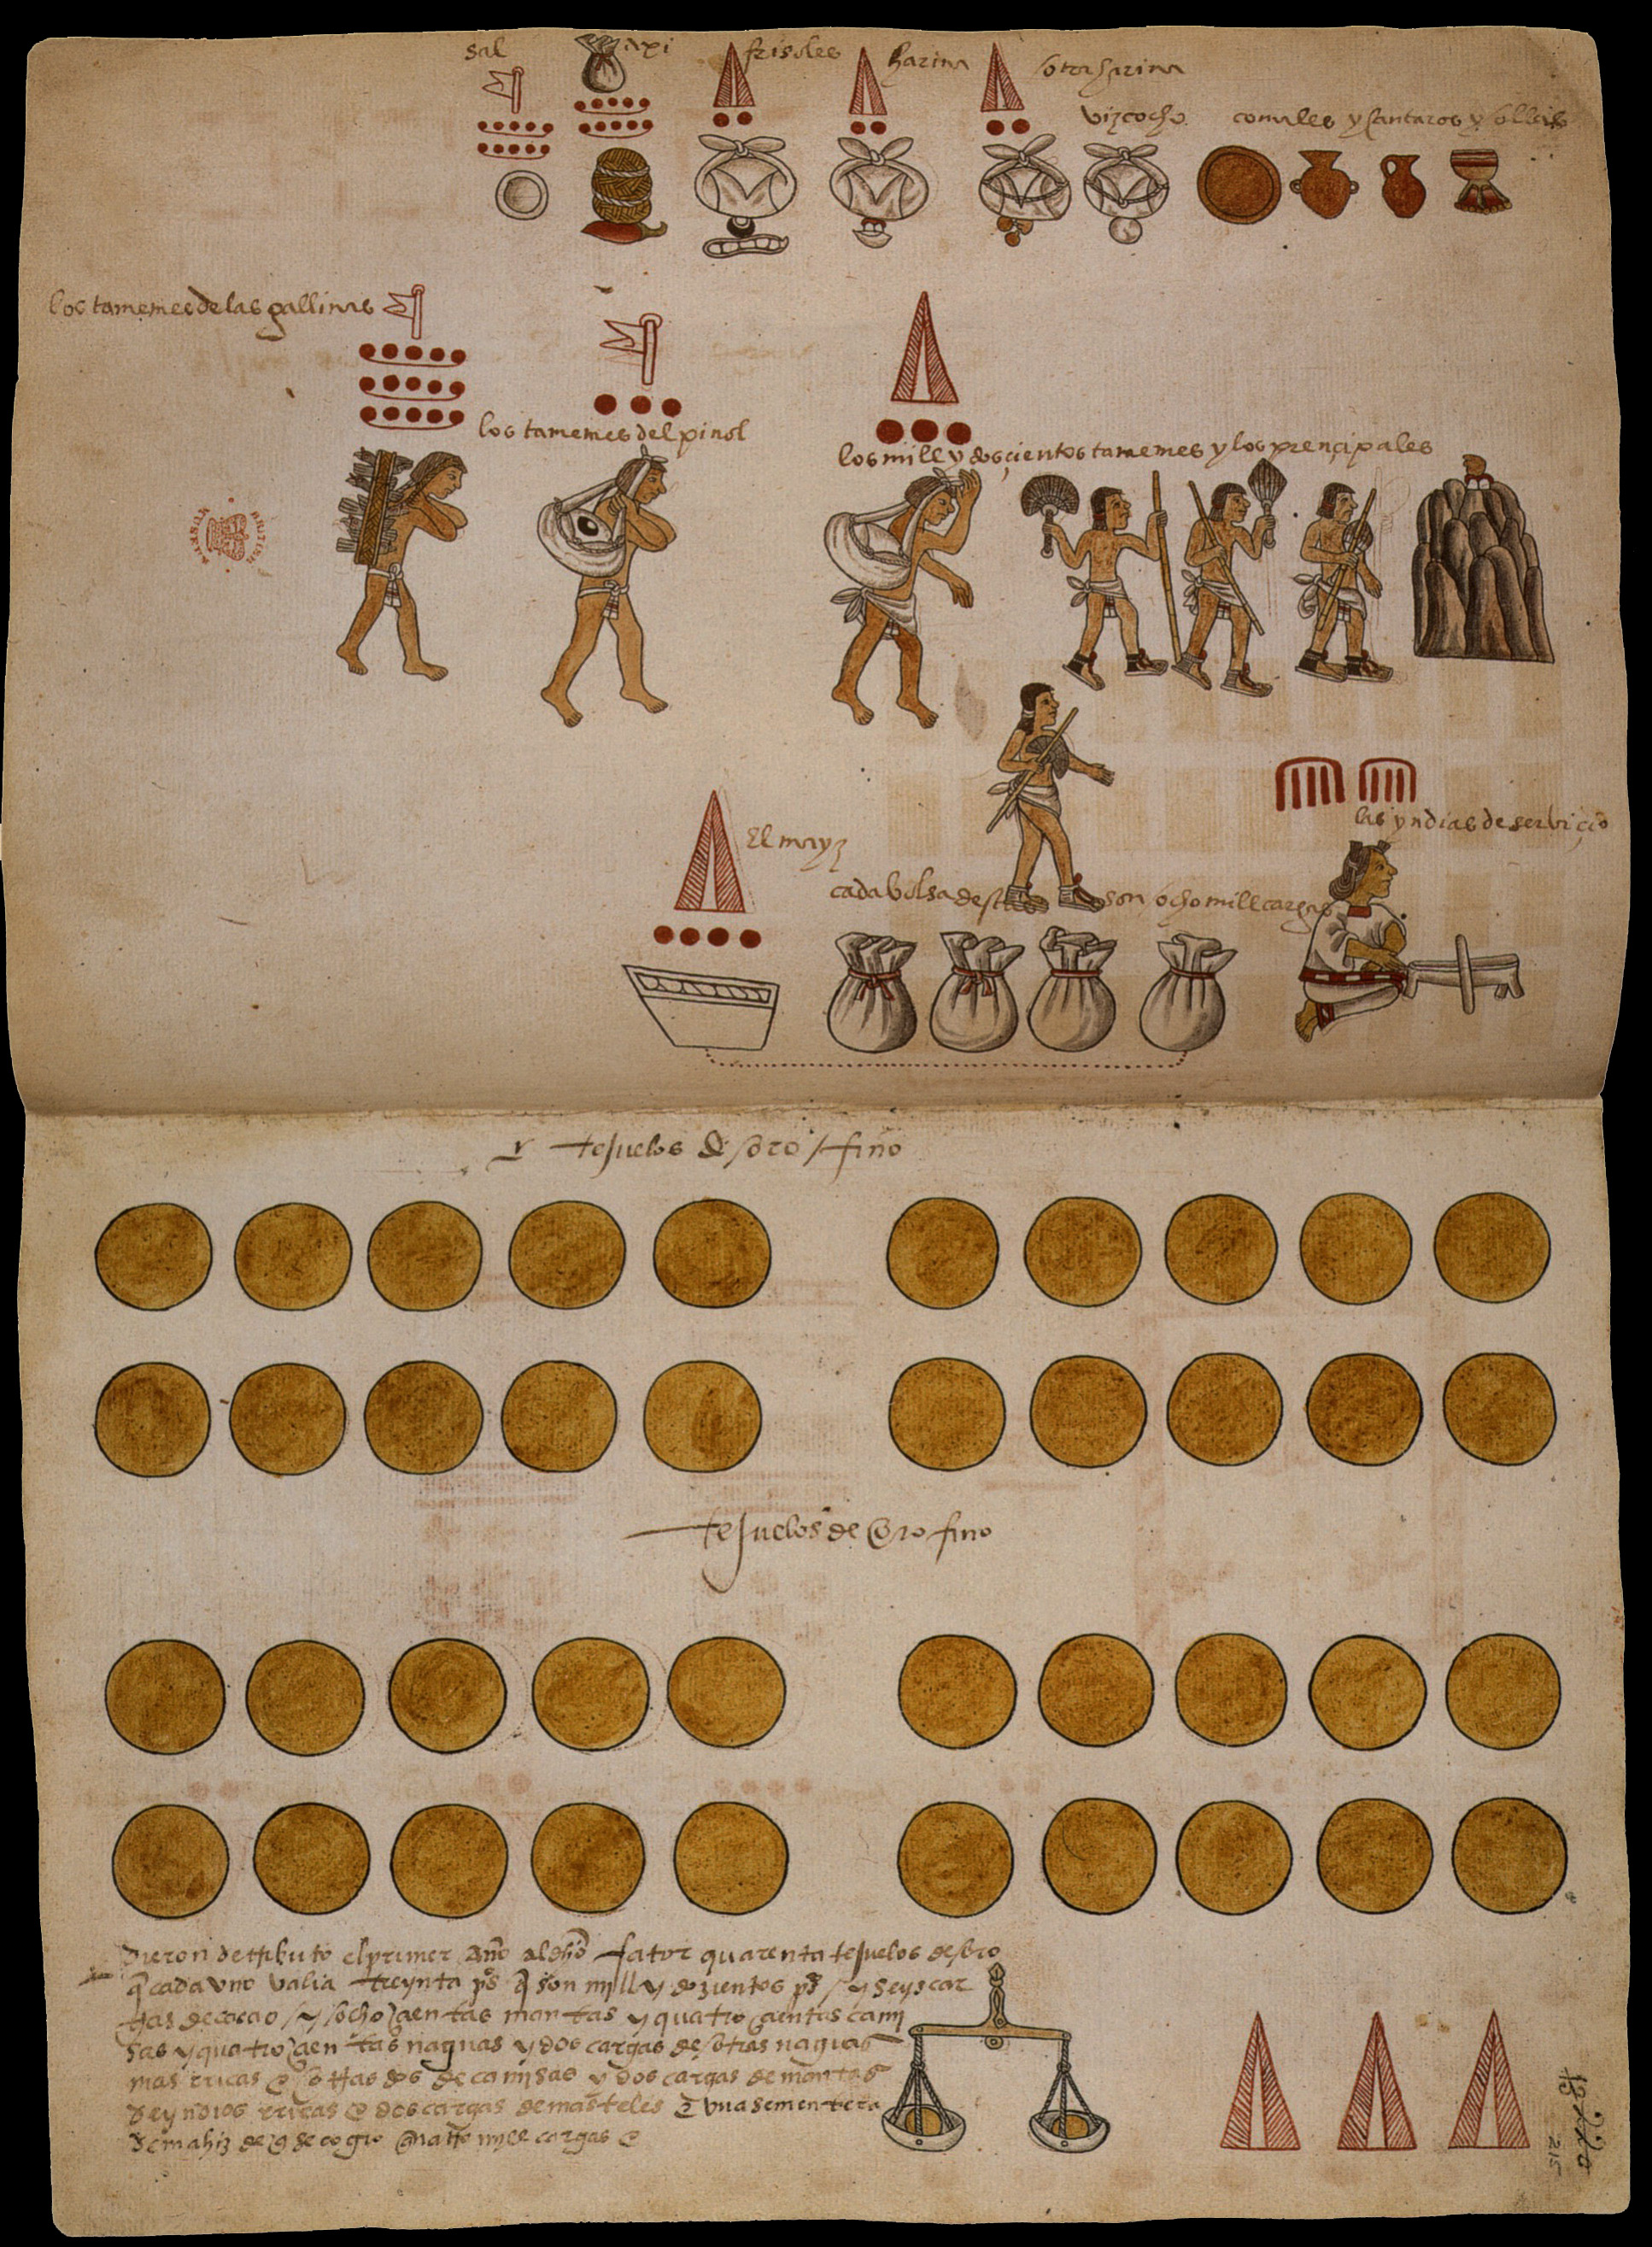 sal
axi
frisoles
harina
otra harina
vizcocho
comales y cantaros y ollas
los tamemes de las gallinas
los tamemes del pinol
los mill y dosçientos tamemes y los prençipales
El mayz
las yndias de serviçio
cada bolsa destas son ocho mill cargas
tesuelos de oro fino
tesuelos de oro fino
dieron de tributo el primer año al dho fator quarenta tesuelos de oro
q cada vno valia treynta ps q son mill y dozientos ps / y seys car
gas de cacao / y ocho çientas mantas y quatro çientas cami
sas y quatro çien tas naguas y dos cargas de otras naguas
mas rricas e otras dos de camisas y dos cargas de mantas
de yndios rricas e dos cargas de masteles e vna sementera
de mahiz de q se cogio cargas e
215